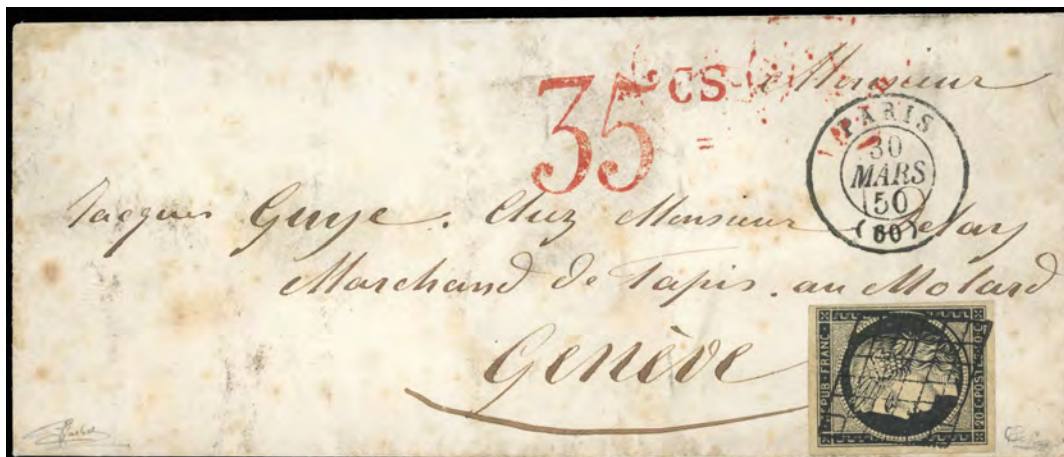 35 cs
Monsieur
PARIS
30
MARS
50
(60)
Jacques Guye. Chez Monsieur
Marchand de Tapis. au Molard
Genève
RÉPUB. FRANC.
20 C POSTES 20 C